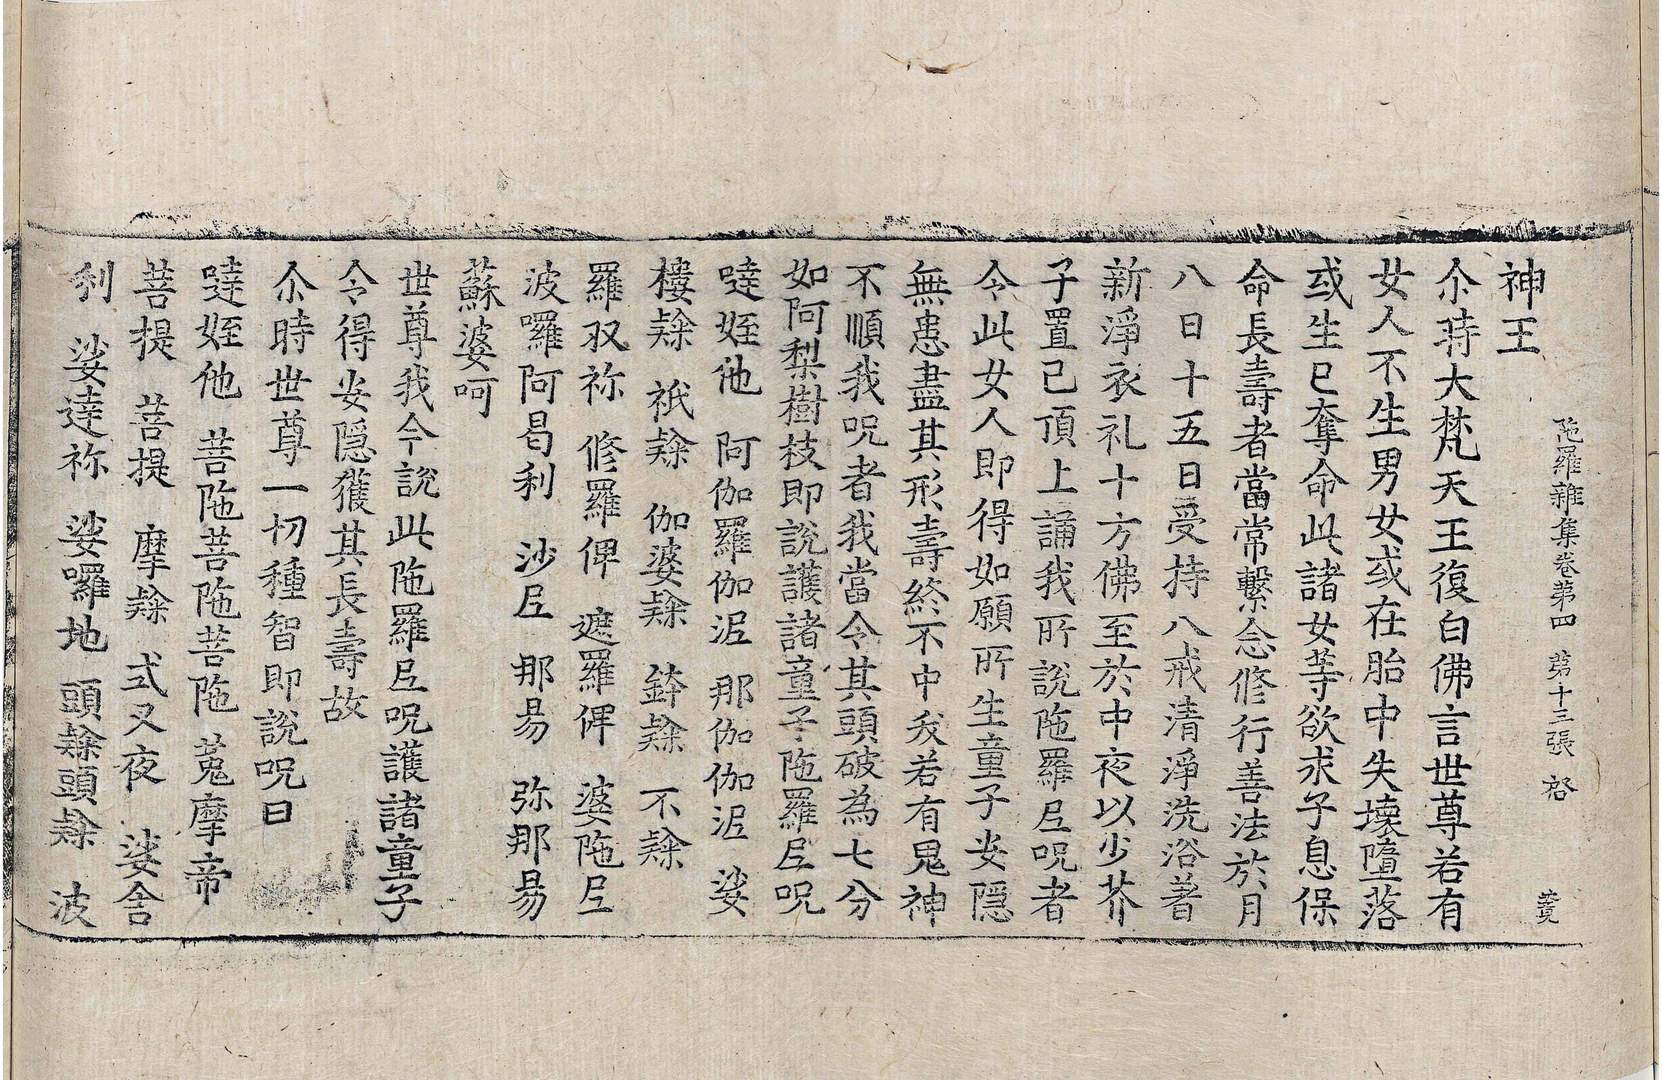 神王
陁羅雜集卷第四　第十三張　啓
尒時大梵天王復白佛言世尊若有
女人不生男女或在胎中失壞墮落
或生已奪命此諸女等欲求子息保
命長壽者當常繫念修行善法於月
八日十五日受持八戒清淨洗浴著
新淨衣礼十方佛至於中夜以少芥
子置已頂上誦我所說陁羅𡰱呪者
令此女人即得如願所生童子安隱
無患盡其形壽終不中夭若有鬼神
不順我呪者我當令其頭破為七分
如阿梨樹枝即說護諸童子陁羅𡰱呪
哒姪他　阿伽羅伽泥　那伽伽泥　娑
樓隸　祇隸　伽婆隸　鉢隸　不隸
羅収祢　修羅俾　遮羅俾　婆陁𡰱
波囉阿曷利　沙𡰱　那易　弥那易
蘇婆呵
世尊我今說此陁羅𡰱呪護諸童子
令得安隱獲其長壽故
尒時世尊一切種智即說呪曰
哒姪他　菩陁菩陁菩陁　菟摩帝
菩提　菩提　摩隸　式叉夜　娑舍
利　娑達祢　娑囉地　頭隸頭隸　波